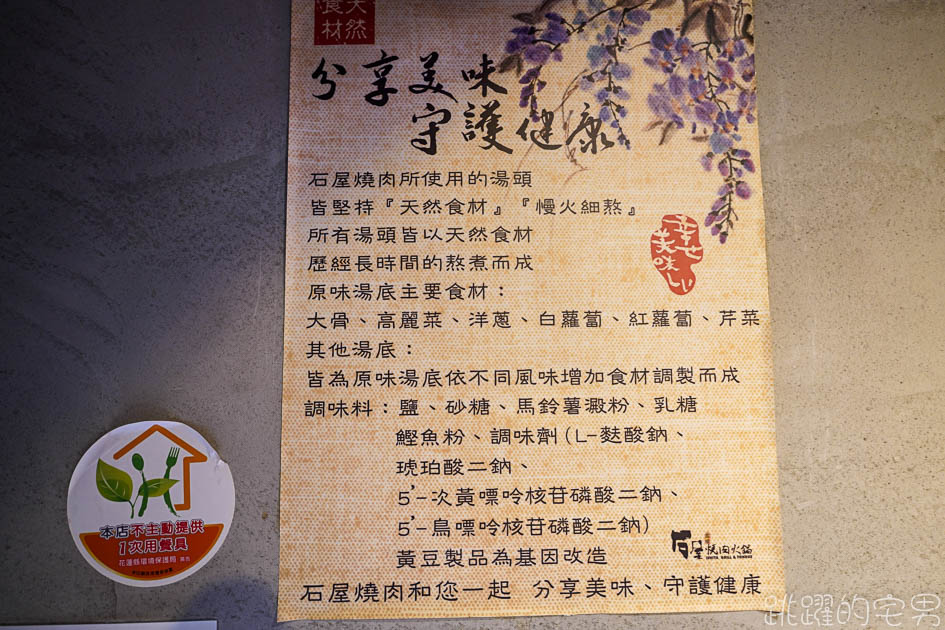 天然
食材
分享美味
守護健康
石屋燒肉所使用的湯頭
皆堅持『天然食材』『慢火細熬』
所有湯頭皆以天然食材
歷經長時間的熬煮而成
原味湯底主要食材：
大骨、高麗菜、洋蔥、白蘿蔔、紅蘿蔔、芹菜
其他湯底：
皆為原味湯底依不同風味增加食材調製而成
調味料：鹽、砂糖、馬鈴薯澱粉、乳糖
鰹魚粉、調味劑(L-麩酸鈉、
琥珀酸二鈉、
5'-次黃嘌呤核苷磷酸二鈉、
5'-鳥嘌呤核苷磷酸二鈉)
黃豆製品為基因改造
石屋燒肉和您一起 分享美味、守護健康
幸せ
美味しい
石屋燒肉火鍋
本店不主動提供
1次用餐具
花蓮縣環境保護局 廣告
跳躍的宅男